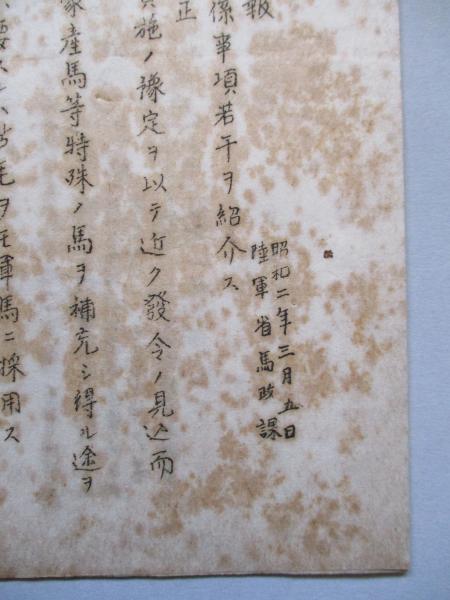 昭和二年三月五日
陸軍省馬政課
報
係事項若干ヲ紹介ス
正
施ノ豫定ヲ以テ近ク發令ノ見込而
産馬等特殊ノ馬ヲ補充シ得ル途ヲ
毛ヲモ軍馬ニ採用ス